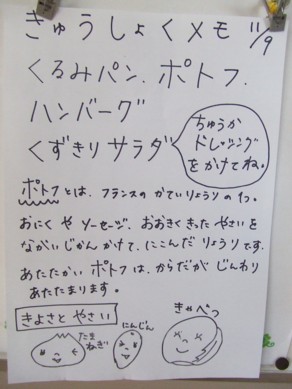 きゅうしょくメモ 11/9
くるみパン、ポトフ、
ハンバーグ
くずきりサラダ
ちゅうか
ドレッシング
をかけてね。
ポトフとは、フランスの かていりょうりの1つ。
おにく や ソーセージ、おおきく きった やさいを
ながい じかん かけて、にこんだ りょうり です。
あたたかい ポトフは、からだが じんわり
あたたまります。
きよさと やさい
たま
ねぎ
にんじん
きゃべつ